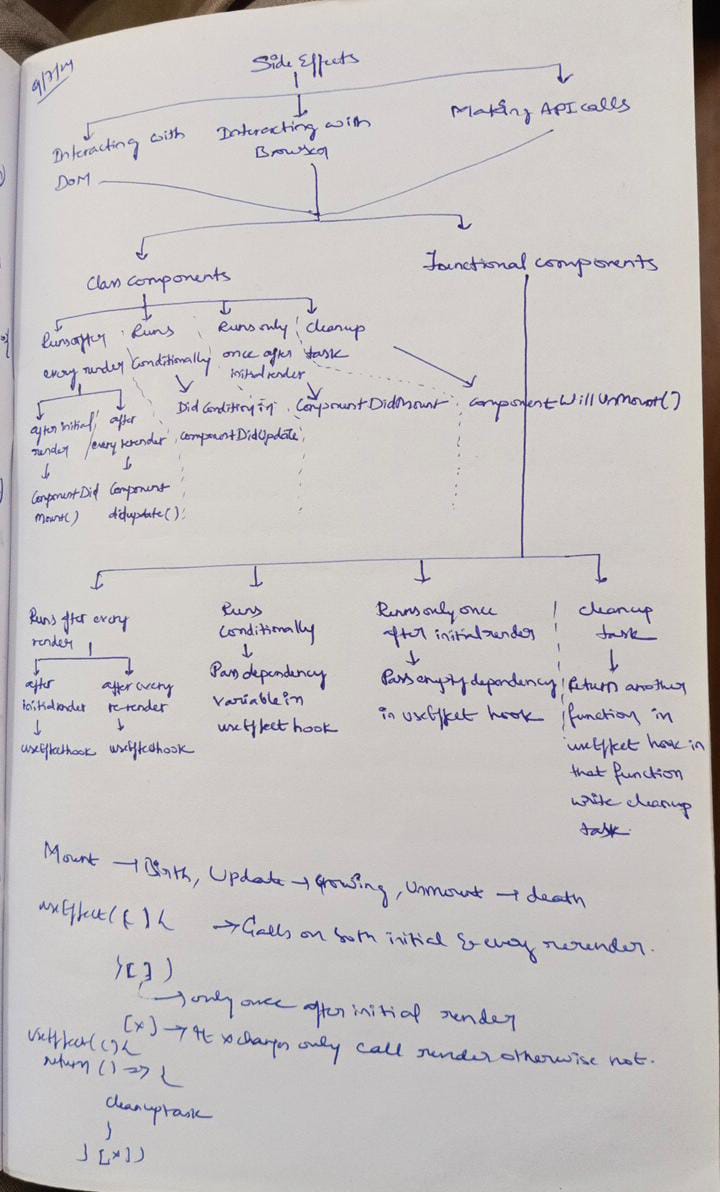 9/7/24
Side Effects
Interacting with
DOM
Interacting with
Browser
Making API calls
Class components
Functional components
Runs after
every render
Runs
Conditionally
Runs only
once after
initial render
cleanup
task
after initial
render
after
every rerender
Component Did
Mount()
Component
didupdate()
Did Condition in
componentDidUpdate
ComponentDidMount
componentWillUnMount()
Runs after every
render
after
initial render
useEffect hook
after every
re-render
useEffect hook
Runs
Conditionally
Pass dependency
variable in
useEffect hook
Runs only once
after initial render
Pass empty dependency
in useEffect hook
cleanup
task
Return another
function in
useEffect hook in
that function
write cleanup
task.
Mount → Birth, Update → Growing, Unmount → death
useEffect(() { → Calls on both initial & every rerender.
}[])
→ only once after initial render
[x] → If x changes only call render otherwise not.
useEffect(() {
return () => {
cleanup task
}
} [x])